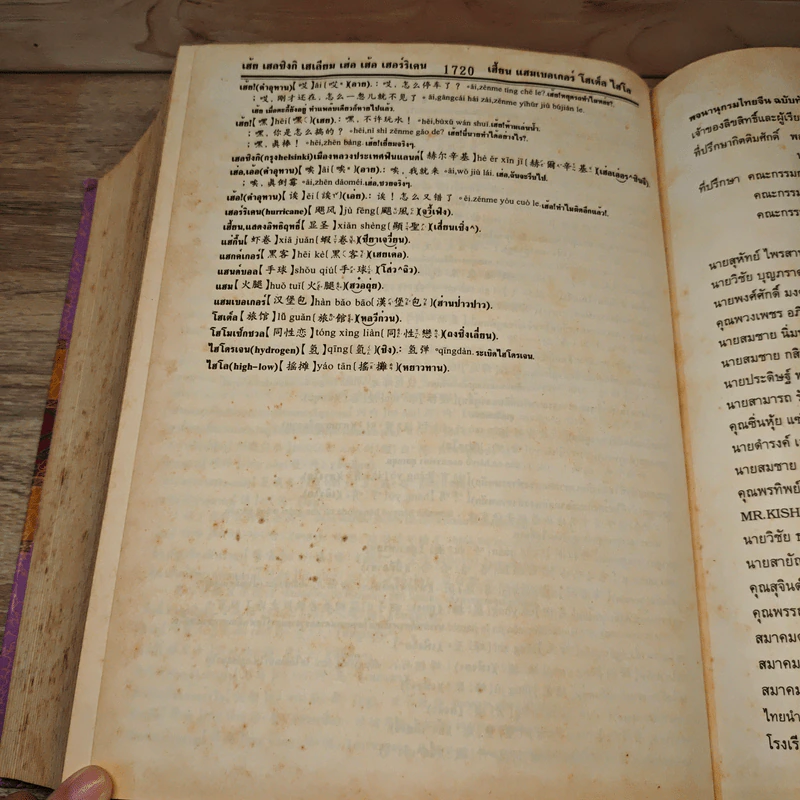 เฮ้ย เฮลซิงกิ เฮเลียม เฮ่อ เฮ้อ เฮอร์ริเคน 1720 เฮี้ยน แฮมเบอเกอร์ โฮเต็ล ไฮโล
เฮ้ย!(คำอุทาน)【哎】āi{哎}(อาย).: 哎, 怎么停车了? āi,zěnme tíng chē le?
; 哎, 刚才还在, 怎么一忽儿就不见了 āi,gāngcái hái zài,zěnme yīhūr jiù bùjiàn le.
เฮ้ย เมื่อตะกี้ยังอยู่ ทำแพล็บเดียวก็หายไปแล้ว.
เฮ้ย!【嘿】hēi{嘿}(เฮย).: 嘿, 不许玩水! hēi,bùxǔ wán shuǐ.
; 嘿, 你是怎么搞的? hēi,nǐ shì zěnme gǎo de?
; 嘿, 真棒! hēi,zhēn bàng. เฮ้ย!เยี่ยมจริงๆ.
เฮลซิงกิ(กรุงhelsinki)เมืองหลวงประเทศฟินแลนด์【赫尔辛基】hè ěr xīn jī{赫爾辛基}
เฮ่อ,เฮ้อ(คำอุทาน)【唉】āi{唉}(อาย).: 唉, 我就来 āi,wǒ jiù lái.
; 唉, 真倒霉 āi,zhēn dǎoméi. เฮ้อ,ซวยจริงๆ.
เฮ้อ!(คำอุทาน)【诶】ēi{誒}(เอ่ย).: 诶! 怎么又错了 ēi,zěnme yòu cuò le.
เฮอร์ริเคน(hurricane)【飓风】jù fēng{颶風}(จวี้เฟิง).
เฮี้ยน,แสดงอิทธิฤทธิ์【显圣】xiǎn shèng{顯聖}
แฮ่กึ๊น【虾卷】xiā juǎn{蝦卷}
แฮกค์เกอร์【黑客】hēi kè{黑客}(เฮยเค่อ).
แฮนด์บอล【手球】shǒu qiú{手球}
แฮม【火腿】huǒ tuǐ{火腿}
แฮมเบอเกอร์【汉堡包】hàn bǎo bāo{漢堡包}(ฮ่านป่าวปาว).
โฮเต็ล【旅馆】lǚ guǎn{旅館}
โฮโมเซ็กชวล【同性恋】tóng xìng liàn{同性戀}(ถงซิ่งเลี่ยน).
ไฮโดรเจน(hydrogen)【氢】qīng{氫}(ชิง).: 氢弹 qīngdàn. ระเบิดไฮโดรเจน.
ไฮโล(high-low)【摇摊】yáo tān{搖攤}(หยาวทาน).
พจนานุกรมไทยจีน ฉบับ
เจ้าของลิขสิทธิ์และผู้เรีย
ที่ปรึกษากิตติมศักดิ์
ที่ปรึกษา คณะกรรมก
คณะกรรม
คณะกรร
นายสุหัทย์ ไพรสา
นายวิชัย บุญภรา
นายพงศ์ศักดิ์ มง
คุณพวงเพชร อภิ
นายสมชาย นิ่ม
นายสมชาย กสิ
นายประดิษฐ์
นายสามารถ
คุณซิ่นหุ้ย แซ
นายดำรงค์
นายสมชาย
คุณพรทิพย์
MR.KISH
นายวิชัย
นายสายัณ
คุณสุจินต์
คุณพรร
สมาคม
สมาค
สมาค
ไทยนำ
โรงเรี